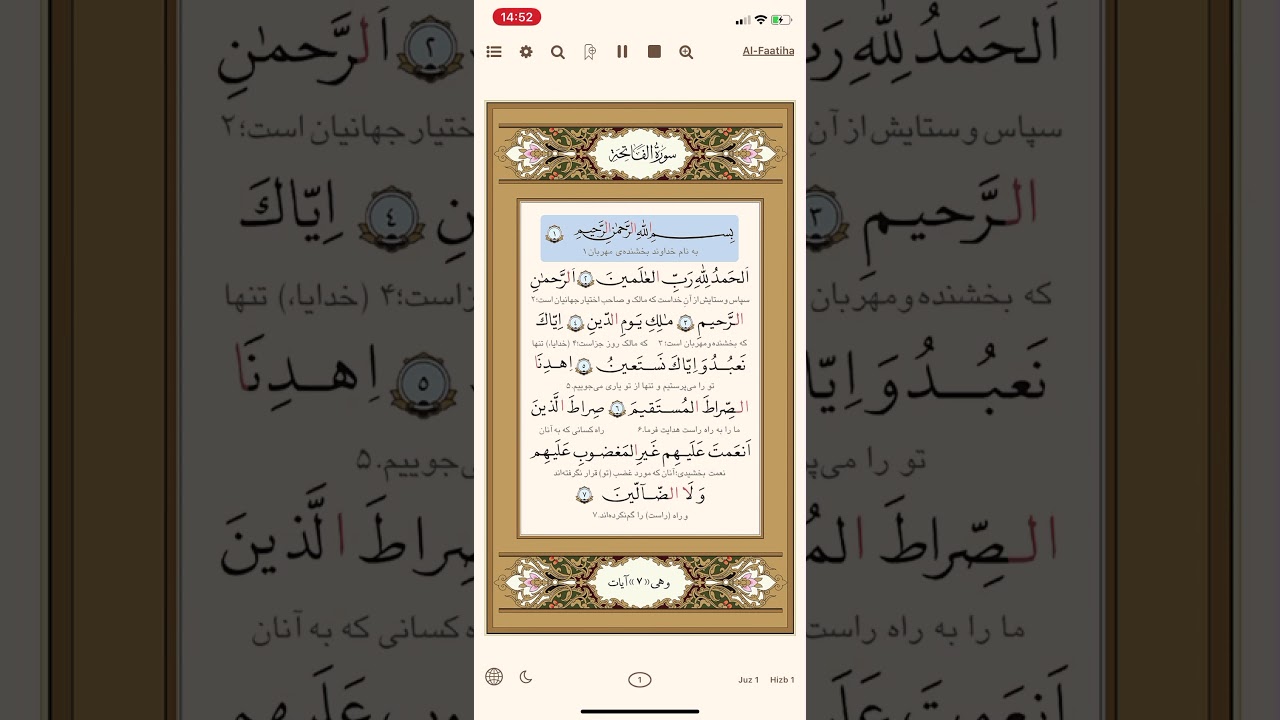 14:52
Al-Faatiha
سورة الفاتحة
بِسـمِ اللّٰهِ الرَّحمٰنِ الرَّحيمِ ۱
به نام خداوند بخشنده‌ی مهربان ۱
اَلحَمدُ لِلّٰهِ رَبِّ العٰلَمينَ ۲ اَلرَّحمٰنِ
سپاس و ستایش از آن خداست که مالک و صاحب اختیار جهانیان است؛۲
الرَّحيمِ ۳ مٰلِكِ يَومِ الدّينِ ٤ اِيّاكَ
که بخشنده و مهربان است؛ ۳ که مالک روز جزاست؛۴ (خدایا،) تنها
نَعبُدُ وَ اِيّاكَ نَستَعينُ ۵ اِهدِنَا
تو را می‌پرستیم و تنها از تو یاری می‌جوییم.۵
الصِّراطَ المُستَقيمَ ٦ صِراطَ الَّذينَ
ما را به راه راست هدایت فرما.۶ راه کسانی که به آنان
اَنعَمتَ عَلَيهِم غَيرِ المَغضوبِ عَلَيهِم
نعمت بخشیدی؛ آنان که مورد غضب (تو) قرار نگرفته‌اند
وَ لَا الضّآلّينَ ۷
و راه (راست) را گم نکرده‌اند.۷
وهی «۷» آیات
1
Juz 1 Hizb 1